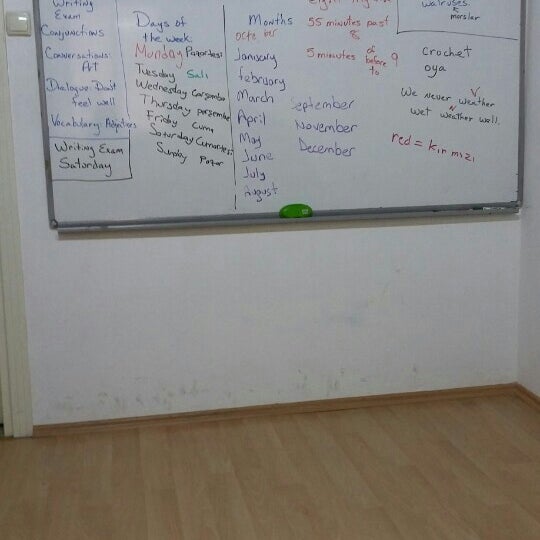 Writing
Exam
Conjunctions
Conversations:
Art
Dialogue: Don't
feel well
Vocabulary:
Writing Exam
Saturday
Days of
the week
Monday Pazartesi
Tuesday Salı
Wednesday Çarşamba
Thursday perşembe
Friday Cuma
Saturday Cumartesi
Sunday Pazar
Months
January
february
March
April
May
June
July
August
September
November
December
55 minutes past
8
5 minutes of 9
before
to
walruses.
morslar
crochet
oya
We never weather
wet weather well.
red = kırmızı